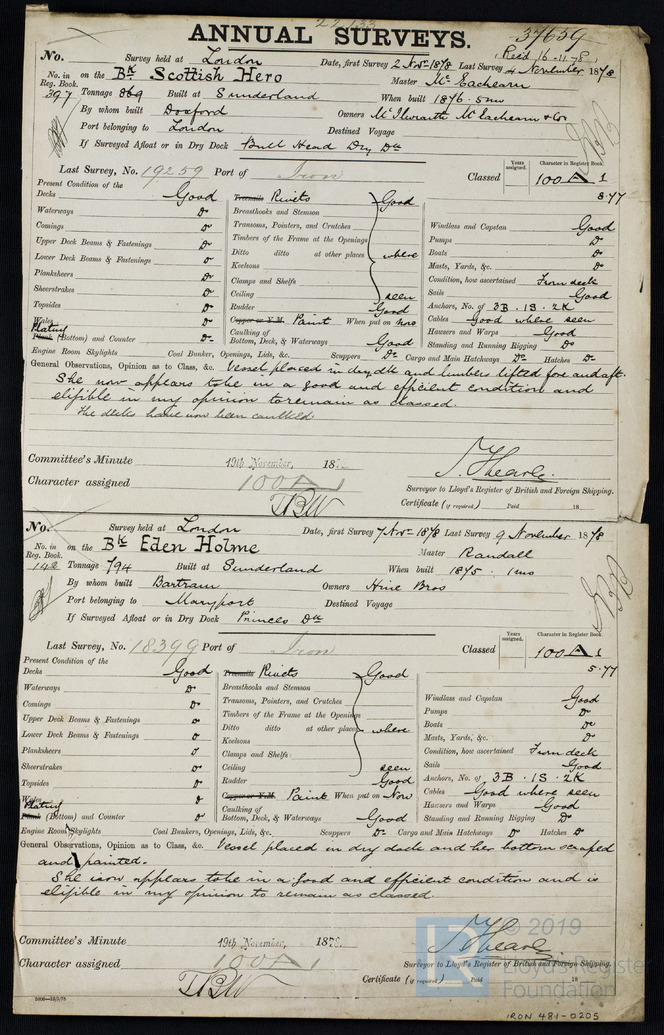 ANNUAL SURVEYS.
37659
Rec'd 16.11.78
No. Survey held at London Date, first Survey 2 Novr 1878 Last Survey 4 November 1878
No. in Reg. Book. on the Bk Scottish Hero Master McEachearn
397 Tonnage 869 Built at Sunderland When built 1876.5mo
By whom built Doxford Owners McIlwraith McEachearn & Co
Port belonging to London Destined Voyage
If Surveyed Afloat or in Dry Dock Bull Head Dry Dk
Last Survey, No. 19259 Port of Iron Classed Years assigned. Character in Register Book. 100 A 1
8.77
Present Condition of the
Decks Good Treenails Rivets Good
Waterways Do Breasthooks and Stemson Windlass and Capstan Good
Comings Do Transoms, Pointers, and Crutches Pumps Do
Upper Deck Beams & Fastenings Do Timbers of the Frame at the Openings Boats Do
Lower Deck Beams & Fastenings Do Ditto ditto at other places where Masts, Yards, &c. Do
Planksheers Do Keelsons Condition, how ascertained From deck
Sheerstrakes Do Clamps and Shelfs Sails Good
Topsides Do Ceiling seen Anchors, No. of 3B.1S.2K
Wales Do Rudder Good Cables Good where seen
Plating Plank (Bottom) and Counter Do Copper or Y.M. Paint When put on Nov Hawsers and Warps Good
Caulking of Bottom, Deck, & Waterways Good Standing and Running Rigging Do
Engine Room Skylights Coal Bunker, Openings, Lids, &c. Scuppers Do Cargo and Main Hatchways Do Hatches Do
General Observations, Opinion as to Class, &c. Vessel placed in dry dk and limbers lifted fore and aft.
She now appears to be in a good and efficient condition and
eligible in my opinion to remain as classed.
The decks have now been caulked
Committee's Minute 19th November, 187
Character assigned 100 A 1
TBW
Surveyor to Lloyd's Register of British and Foreign Shipping.
Certificate (if required) Paid 18
No. Survey held at London Date, first Survey 7 Novr 1878 Last Survey 9 November 1878
No. in Reg. Book. on the Bk Eden Holme Master Randall
142 Tonnage 794 Built at Sunderland When built 1875. 1mo
By whom built Bartram Owners Hine Bros
Port belonging to Maryport Destined Voyage
If Surveyed Afloat or in Dry Dock Princes Dk
Last Survey, No. 18399 Port of Iron Classed Years assigned. Character in Register Book. 100 A 1
5.77
Present Condition of the
Decks Good Treenails Rivets Good
Waterways Do Breasthooks and Stemson Windlass and Capstan Good
Comings Do Transoms, Pointers, and Crutches Pumps Do
Upper Deck Beams & Fastenings Do Timbers of the Frame at the Openings Boats Do
Lower Deck Beams & Fastenings Do Ditto ditto at other places where Masts, Yards, &c. Do
Planksheers Do Keelsons Condition, how ascertained From deck
Sheerstrakes Do Clamps and Shelfs Sails Good
Topsides Do Ceiling seen Anchors, No. of 3B.1S.2K
Wales Do Rudder Good Cables Good where seen
Plating Plank (Bottom) and Counter Do Copper or Y.M. Paint When put on Now Hawsers and Warps Good
Caulking of Bottom, Deck, & Waterways Good Standing and Running Rigging Do
Engine Room Skylights Coal Bunkers, Openings, Lids, &c. Scuppers Do Cargo and Main Hatchways Do Hatches Do
General Observations, Opinion as to Class, &c. Vessel placed in dry dock and her bottom scraped
and painted.
She now appears to be in a good and efficient condition and is
eligible in my opinion to remain as classed.
Committee's Minute 19th November, 187
Character assigned 100 A 1
TBW
Surveyor to Lloyd's Register of British and Foreign Shipping.
Certificate (if required) Paid 18
© 2019
Lloyd's Register
Foundation
IRON 481-0205